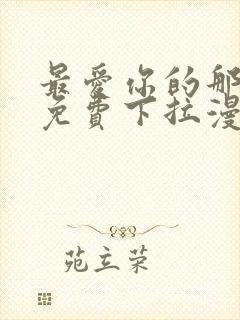 最爱你的那
免費下拉漫
苑立荣